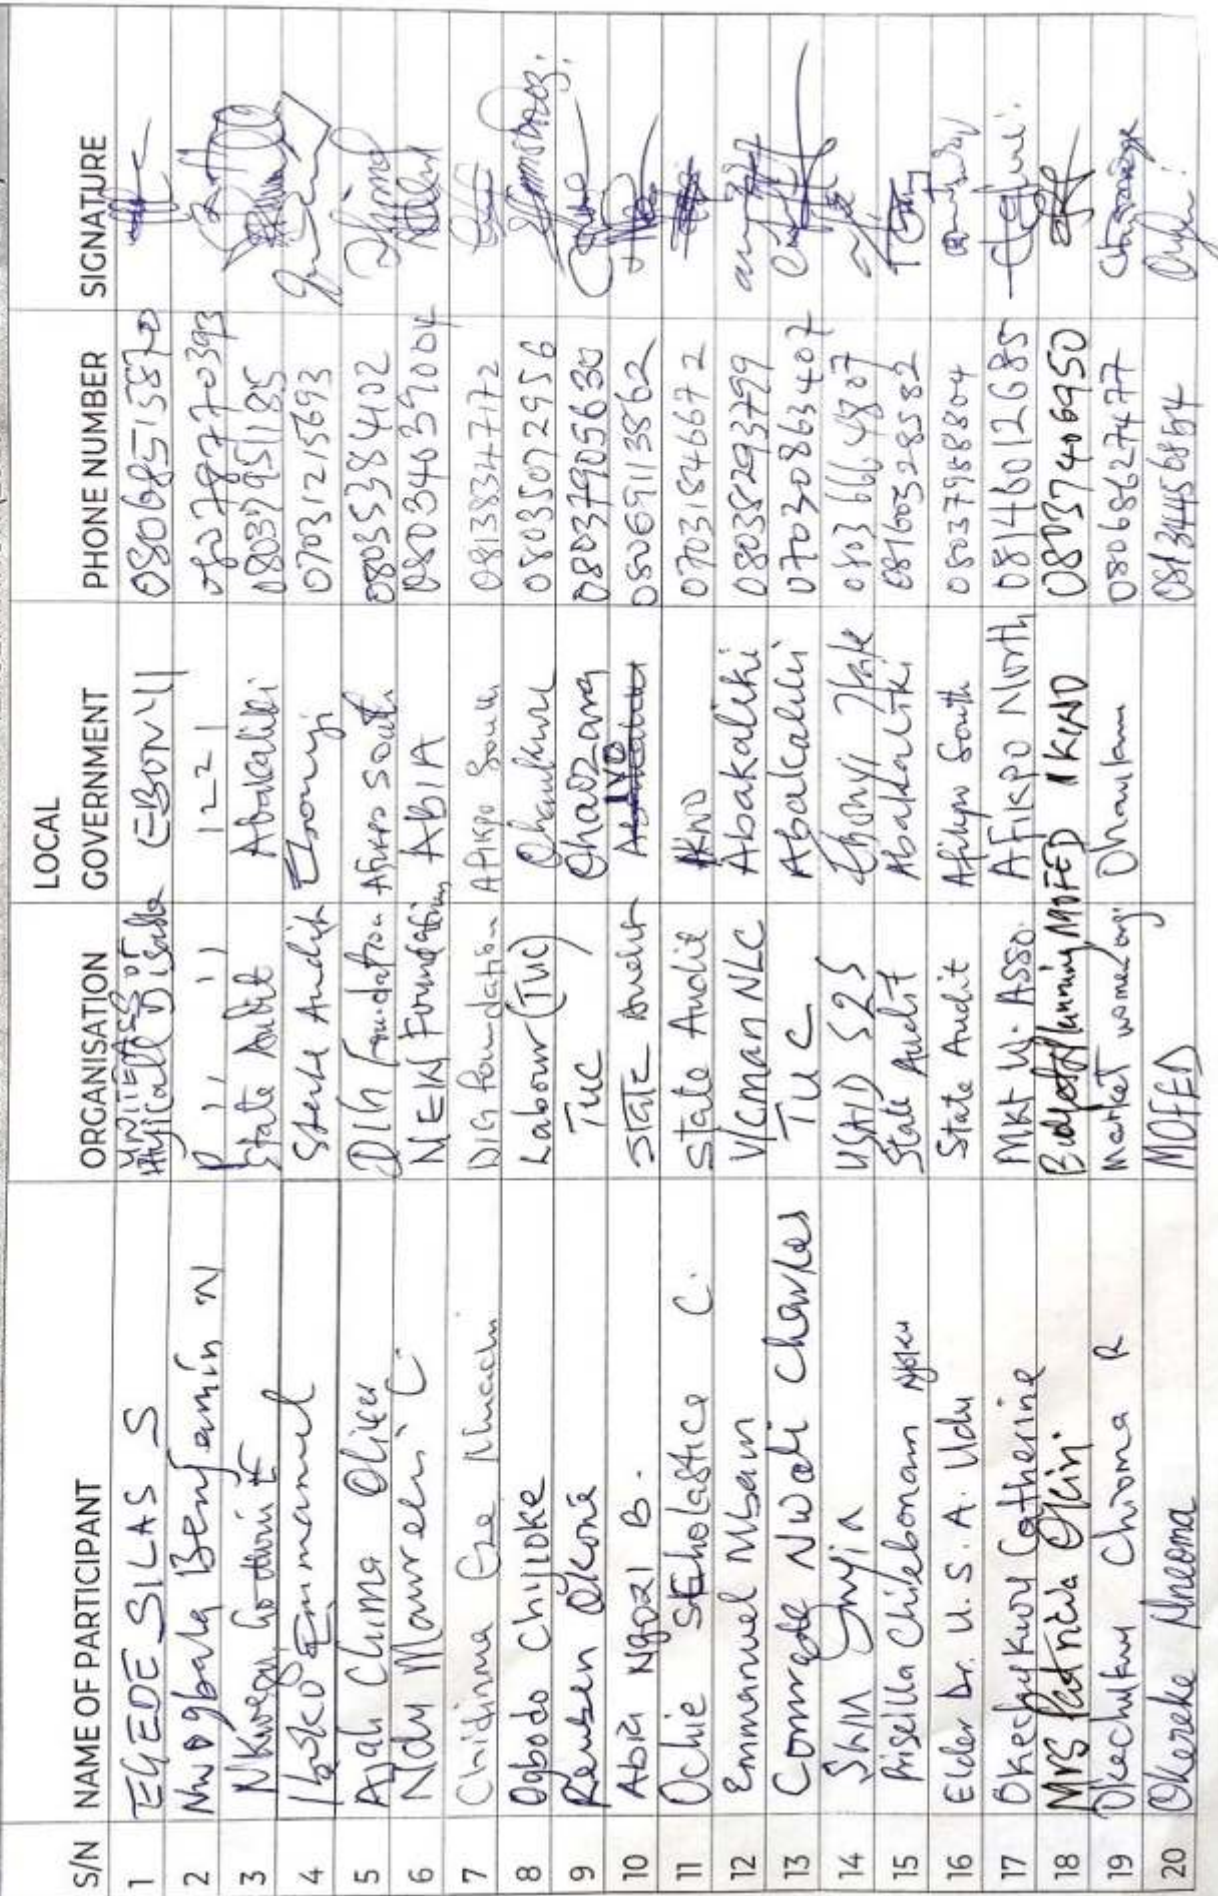 S/N NAME OF PARTICIPANT ORGANISATION LOCAL GOVERNMENT PHONE NUMBER SIGNATURE
1 EGEDE SILAS S EBONYI 08068515870
2 Nwogbala Benjamin N ,, ,, ,, 0802787770393
3 State Audit Abakaliki 08037951185
4 Emmanuel State Audit Ebonyi 07031215693
5 Ajah Chima Oliver DIG Foundation Afikpo South 08035384402
6 Ndu Maureen C NEW Foundation, ABIA 08034039004
7 Chidinma Eze Nnachi DIG Foundation Afikpo South 08138347172
8 Ogbodo Chijioke Labour (TUC) Ohaukwu 08035072956
9 Reuben Okorie TUC Ohaozara 08037905630
10 Abia Ngozi B. STATE Audit IVO 08069113862
11 Ochie Scholastica C. State Audit 07031846672
12 Emmanuel Mbam V/Cman NLC Abakaliki 08038293799
13 Comrade Nwali Charles TUC Abakaliki 07030863407
14 USAID S2S Ebonyi State 08036664807
15 Prisella Chinebonam State Audit Abakaliki 08160328582
16 Elder Dr. U. S. A. Udu State Audit Afikpo South 08037988804
17 Okechukwu Catherine Mkt W. Asso. Afikpo North 08146012685
18 Mrs Patricia Budget & Planning MOFED IKWO 08037406950
19 Okechukwu Chioma R Market women org Ohaukwu 08068627477
20 Okereke Nneoma MOFED 08134456864